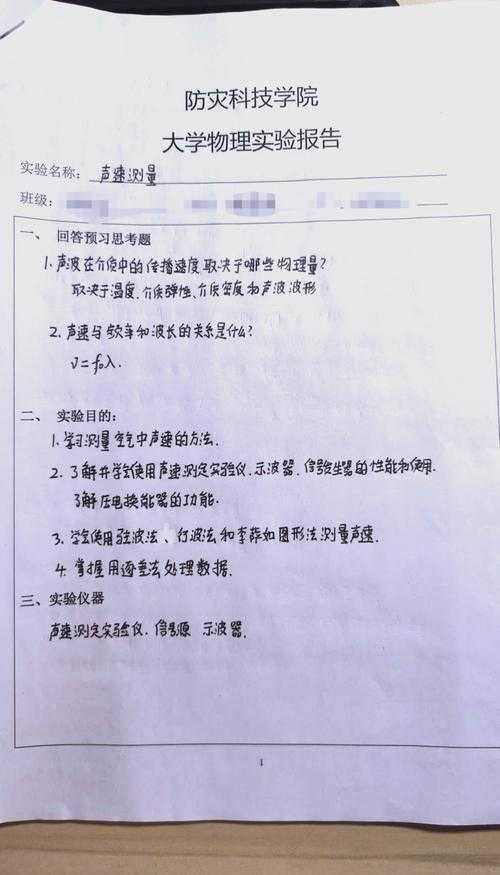 防灾科技学院
大学物理实验报告
实验名称: 声速测量
班级:
一、 回答预习思考题
1.声波在介质中的传播速度取决于哪些物理量?
取决于温度、介质弹性、介质密度和声波波形
2.声速与频率和波长的关系是什么?
v=f₀λ.
二、 实验目的:
1.学习测量空气中声速的方法.
2.了解并学会使用声速测定实验仪.示波器.信号发生器的性能和使用.
了解压电换能器的功能.
3.学会使用驻波法、行波法和李萨如图形法测量声速.
4.掌握用逐差法处理数据.
三、实验仪器
声速测定实验仪.信号源 示波器.
1